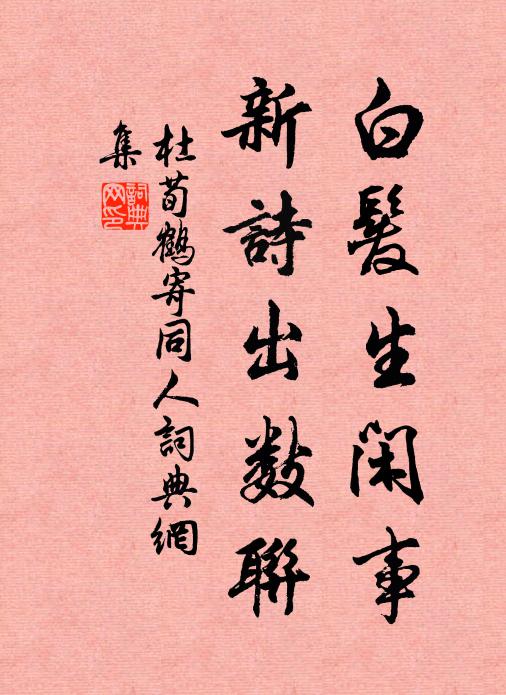 白髮生閑事
新詩出數聯
杜荀鶴寄同人詞典網
集
詞典
网印